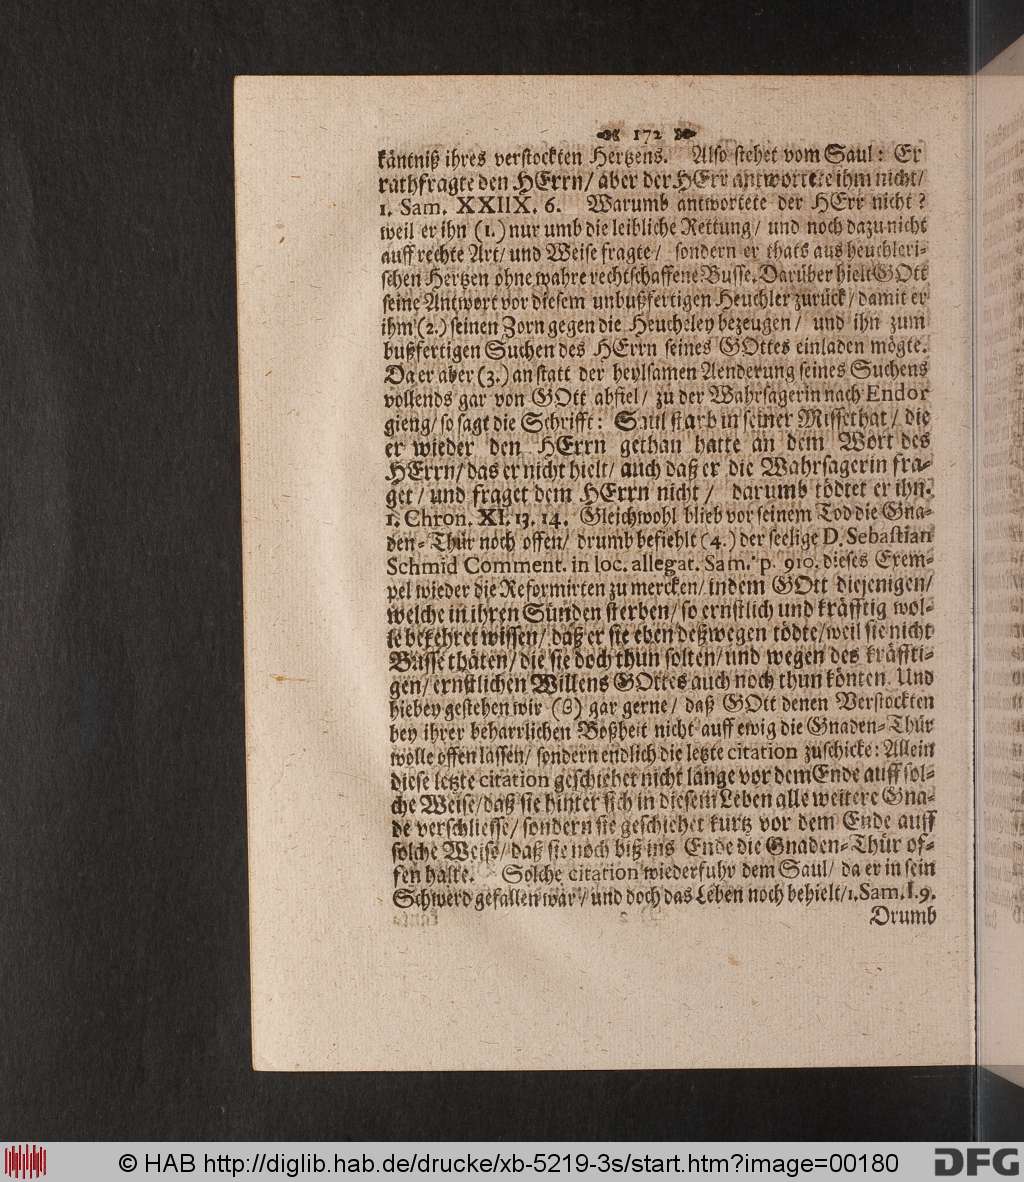 172
käntniß ihres verstockten Hertzens. Also stehet vom Saul: Er
rathfragte den HErrn/ aber der HErr antwortete ihm nicht/
1. Sam. XXIIX. 6. Warumb antwortete der HErr nicht?
weil er ihn (1.) nur umb die leibliche Rettung/ und noch dazu nicht
auff rechte Art/ und Weise fragte/ sondern er thats aus heuchleri-
schen Hertzen ohne wahre rechtschaffene Busse. Darüber hielt GOtt
seine Antwort vor diesem unbußfertigen Heuchler zurück/ damit er
ihm (2.) seinen Zorn gegen die Heucheley bezeugen/ und ihn zum
bußfertigen Suchen des HErrn seines GOttes einladen mögte.
Da er aber (3.) an statt der heylsamen Aenderung seines Suchens
vollends gar von GOtt abfiel/ zu der Wahrsagerin nach Endor
gieng/ so sagt die Schrifft: Saul starb in seiner Missethat/ die
er wieder den HErrn gethan hatte an dem Wort des
HErrn/ das er nicht hielt/ auch daß er die Wahrsagerin fra-
get/ und fraget dem HErrn nicht/ darumb tödtet er ihn.
1. Chron. XI. 13. 14. Gleichwohl blieb vor seinem Tod die Gna-
den-Thür noch offen/ drumb befiehlt (4.) der seelige D. Sebastian
Schmid Comment. in loc. allegat. Sam. p. 910. dieses Exem-
pel wieder die Reformirten zu mercken/ indem GOtt diejenigen/
welche in ihren Sünden sterben/ so ernstlich und kräfftig wol-
le bekehret wissen/ daß er sie eben deßwegen tödte/ weil sie nicht
Busse thäten/ die sie doch thun solten/ und wegen des kräffti-
gen/ ernstlichen Willens GOttes auch noch thun könten. Und
hiebey gestehen wir (ß) gar gerne/ daß GOtt denen Verstockten
bey ihrer beharrlichen Boßheit nicht auff ewig die Gnaden-Thür
wolle offen lassen/ sondern endlich die letzte citation zuschicke: Allein
diese letzte citation geschiehet nicht länge vor dem Ende auff sol-
che Weise/ daß sie hinter sich in diesem Leben alle weitere Gna-
de verschliesse/ sondern sie geschiehet kurtz vor dem Ende auff
solche Weise/ daß sie noch biß ins Ende die Gnaden-Thür of-
fen halte. Solche citation wiederfuhr dem Saul/ da er in sein
Schwerd gefallen war/ und doch das Leben noch behielt/ 1. Sam. I. 9.
Drumb
© HAB http://diglib.hab.de/drucke/xb-5219-3s/start.htm?image=00180
DFG